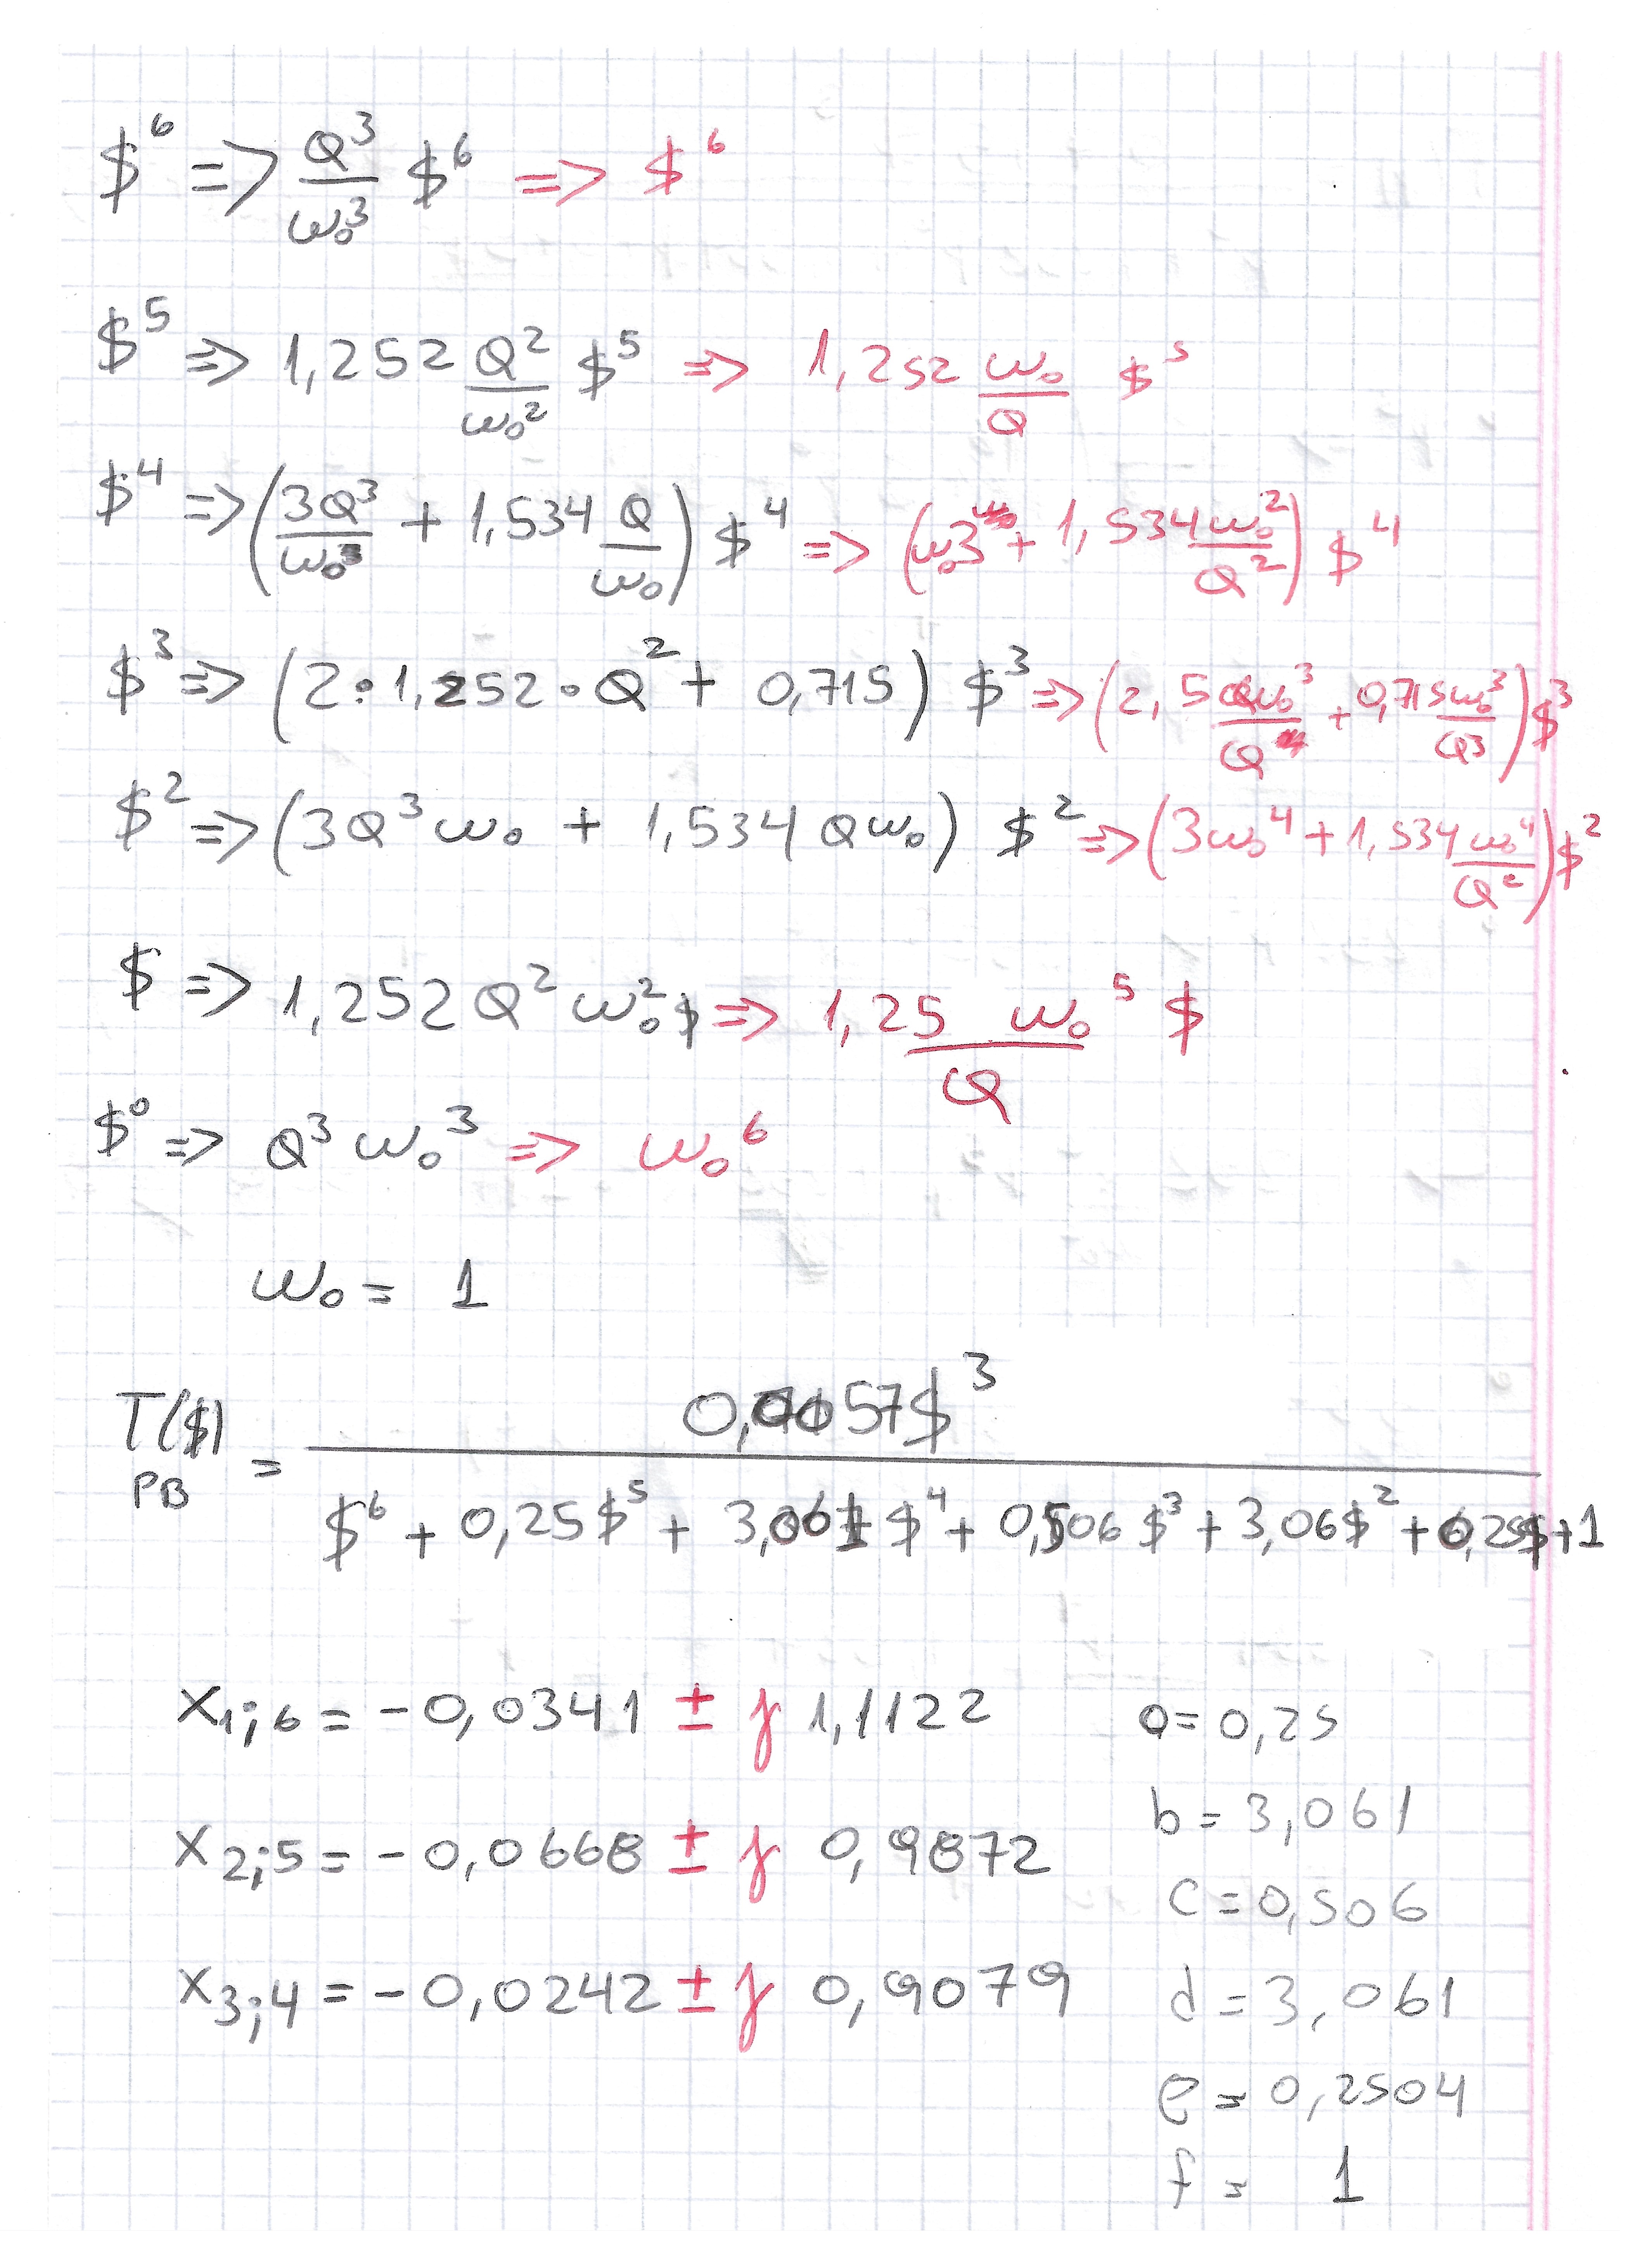 $⁶ => Q³/ω₀³ $⁶ => $⁶
$⁵ => 1,252 Q²/ω₀² $⁵ => 1,252 ω₀/Q $⁵
$⁴ => (3Q³/ω₀ + 1,534 Q/ω₀) $⁴ => (ω₀3 + 1,534 ω₀²/Q²) $⁴
$³ => (2·1,252·Q² + 0,715) $³ => (2,5 ω₀³/Q + 0,715 ω₀³/Q³) $³
$² => (3Q³ω₀ + 1,534 Qω₀) $² => (3ω₀⁴ + 1,534 ω₀⁴/Q²) $²
$ => 1,252 Q² ω₀² $ => 1,25 ω₀⁵/Q $
$⁰ => Q³ ω₀³ => ω₀⁶
ω₀ = 1
T($) PB = 0,0057$³ / $⁶ + 0,25$⁵ + 3,061 $⁴ + 0,506 $³ + 3,06$² + 0,25$ + 1
x₁;₆ = -0,0341 ± j 1,1122
a = 0,25
b = 3,061
x₂;₅ = -0,0668 ± j 0,9872
c = 0,506
x₃;₄ = -0,0242 ± j 0,9079
d = 3,061
e = 0,2504
f = 1